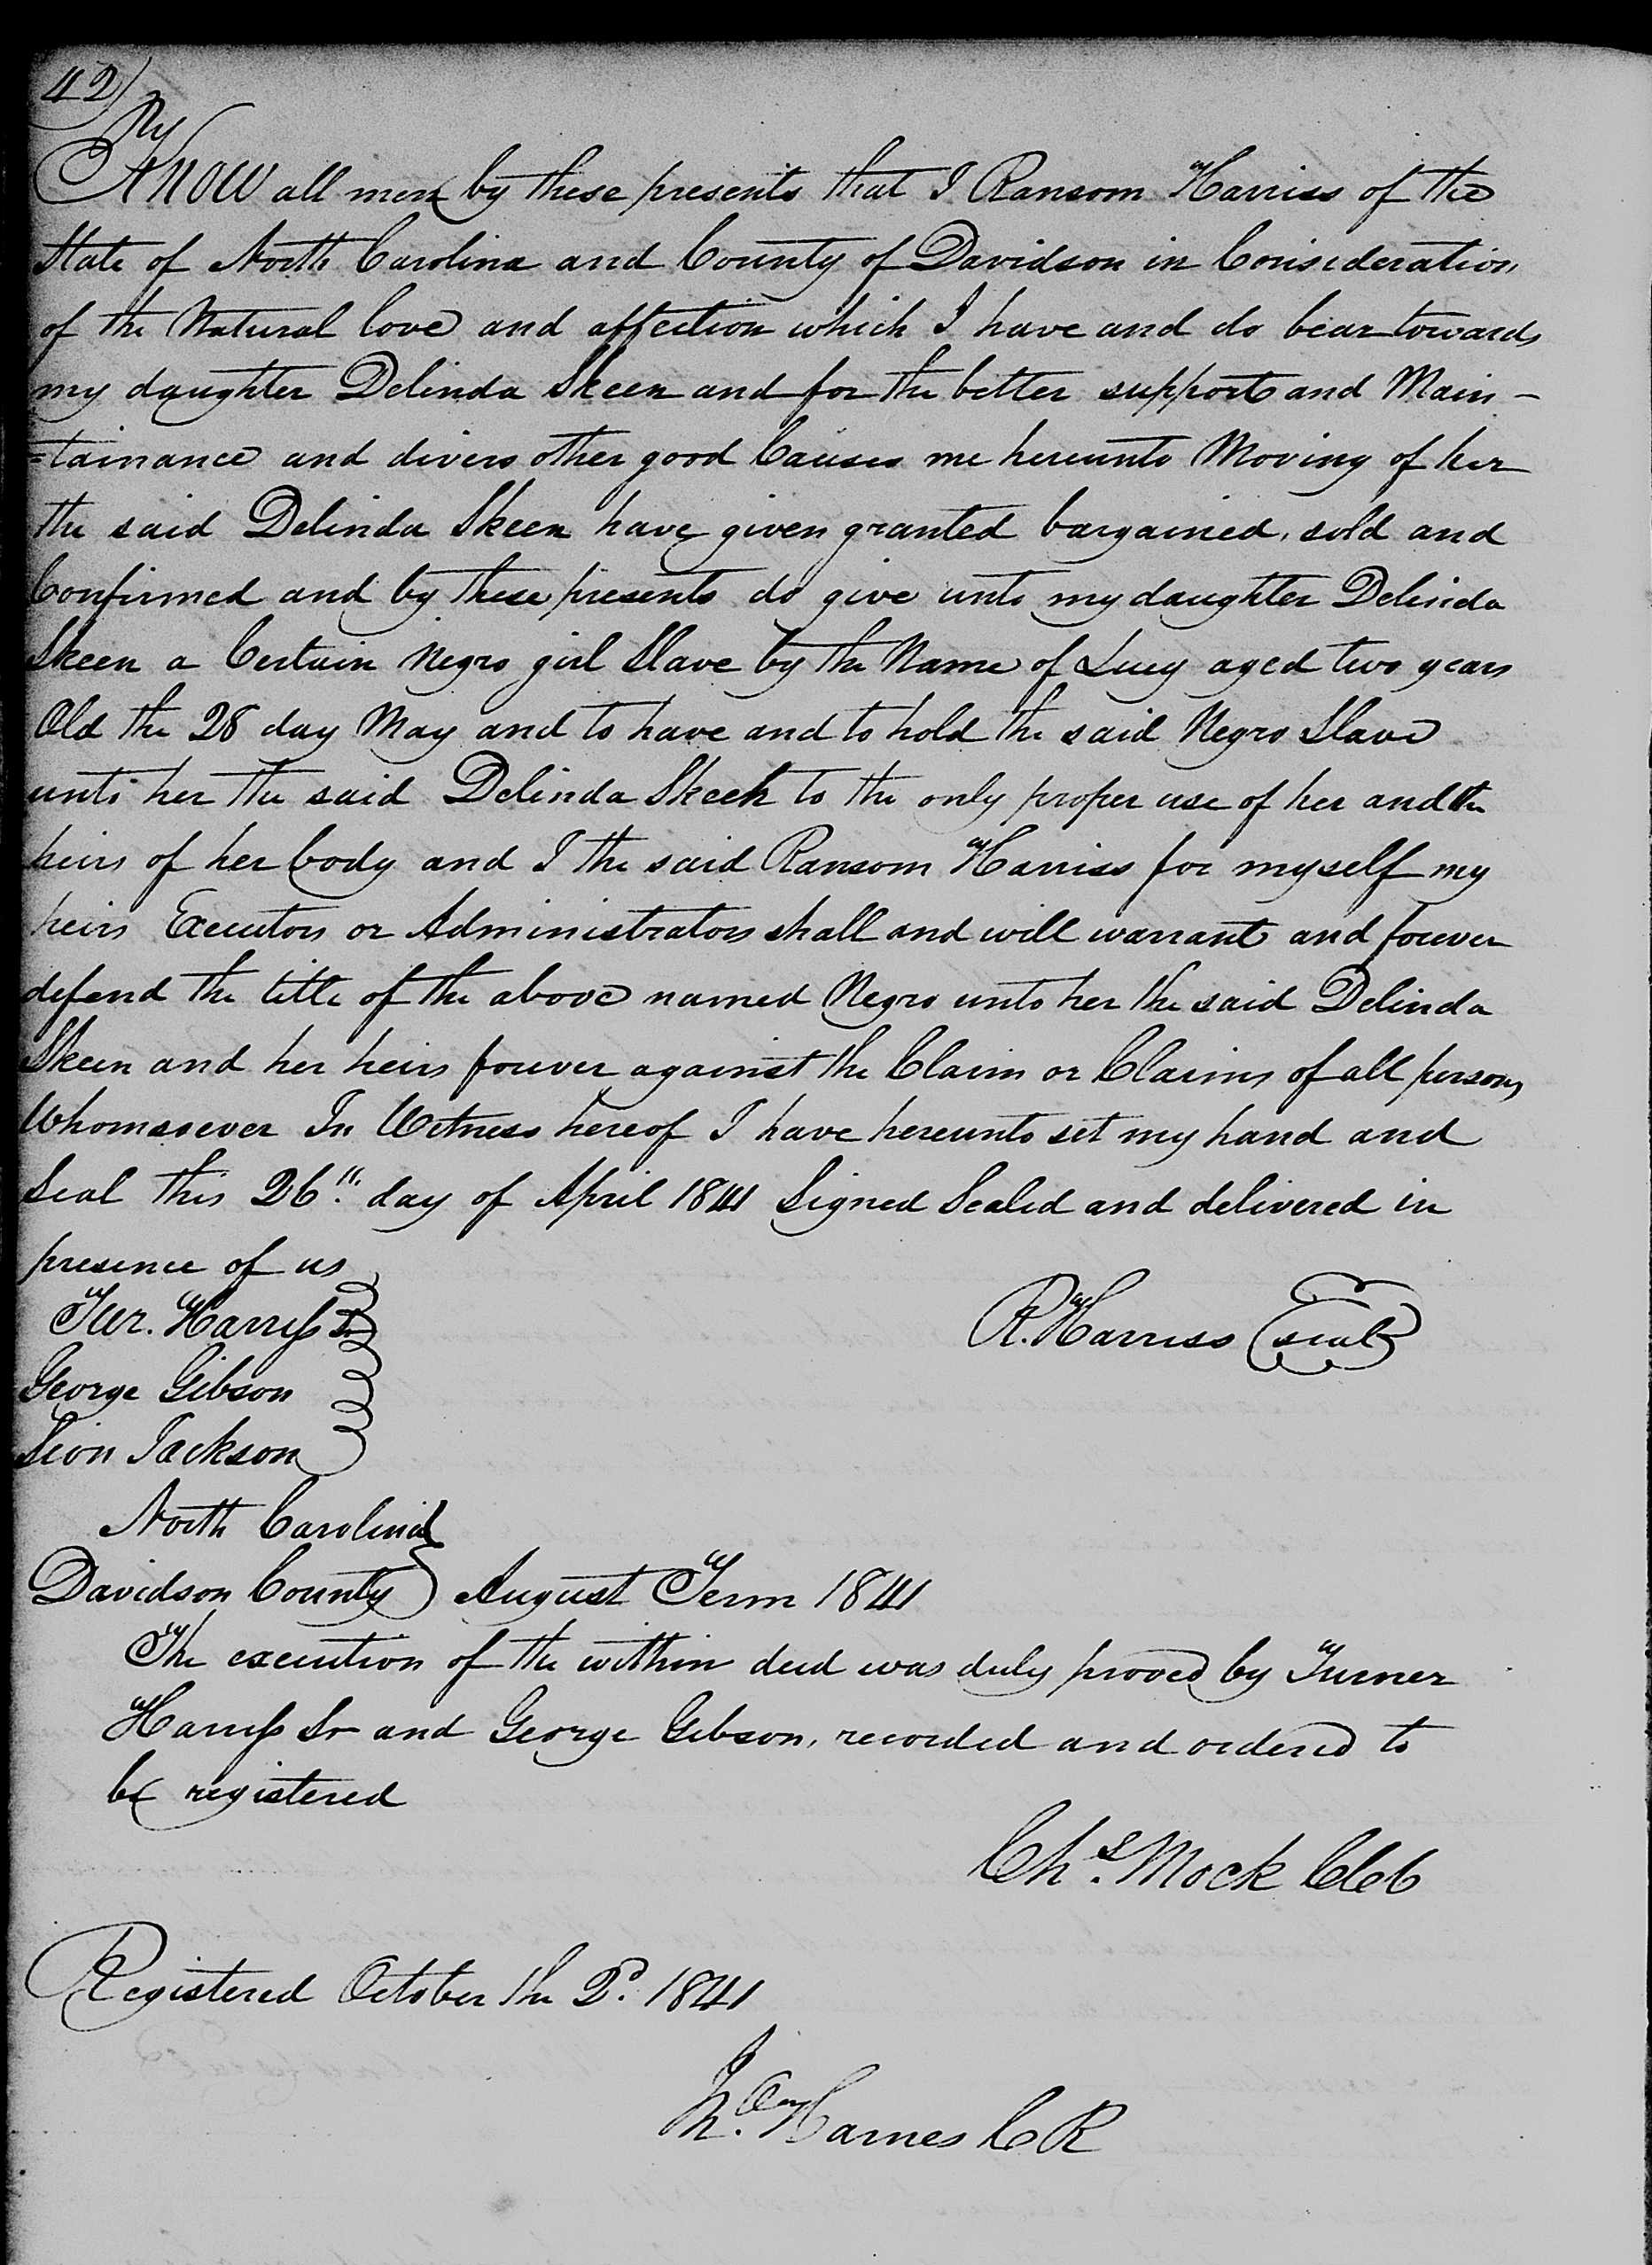 42)
Know all men by these presents that I Ransom Harriss of the
State of North Carolina and County of Davidson in Consideration
of the Natural love and affection which I have and do bear towards
my daughter Delinda Skeen and for the better support and Main-
=tainance and divers other good Causes me hereunto Moving of her
the said Delinda Skeen have given granted bargained, sold and
Confirmed and by these presents do give unto my daughter Delinda
Skeen a Certain Negro girl Slave by the Name of Lucy aged two years
Old the 28 day May and to have and to hold the said Negro Slave
unto her the said Delinda Skeen to the only proper use of her and the
heirs of her body and I the said Ransom Harriss for myself my
heirs Executors or Administrators shall and will warrant and forever
defend the title of the above named Negro unto her the said Delinda
Skeen and her heirs forever against the Claim or Claims of all persons
Whomsoever In Witness hereof I have hereunto set my hand and
Seal this 26th day of April 1841 Signed Sealed and delivered in
presence of us
Tur. Harriss Sr
R. Harriss (seal)
George Gibson
Sion Jackson
North Carolina
Davidson County August Term 1841
The execution of the within deed was duly proved by Turner
Harriss Sr and George Gibson, recorded and ordered to
be registered
Chs. Mock CCC
Registered October the 2d. 1841
Harnes C R